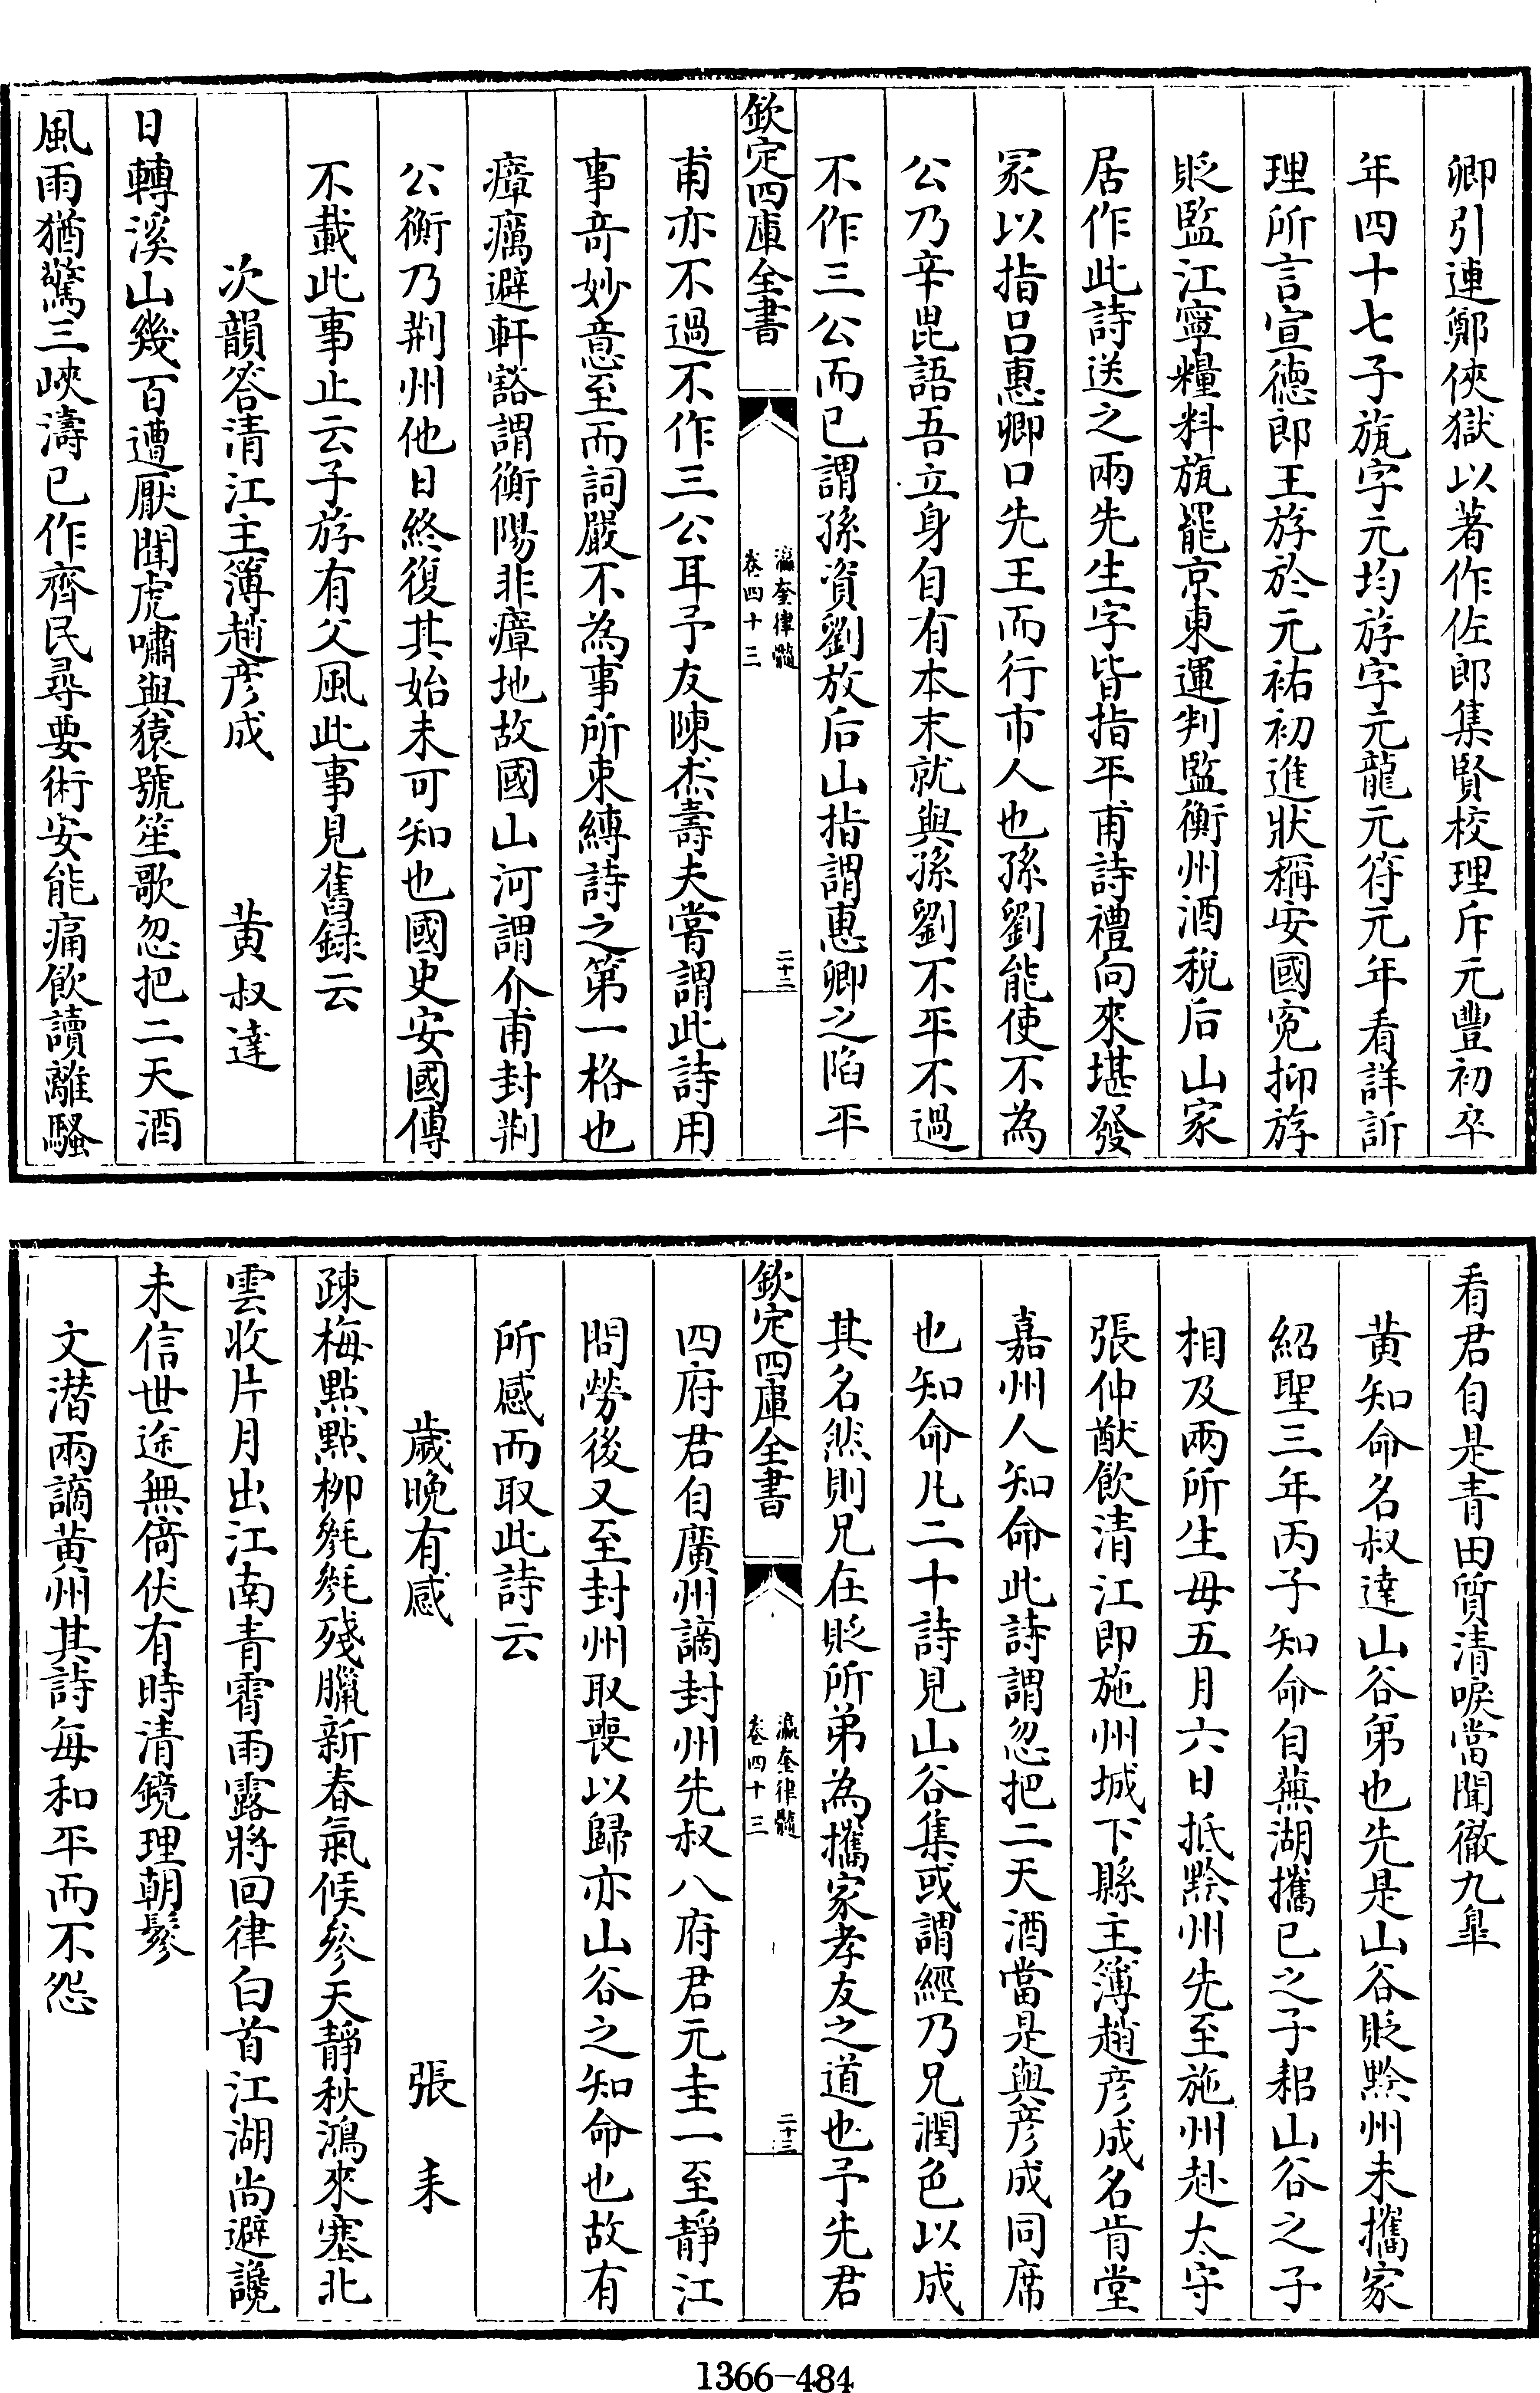 卿引連鄭俠獄以著作佐郎集賢校理斥元豐初卒
年四十七子旊字元均斿字元龍元符元年看詳訢
理所言宣德郎王斿於元祐初進狀稱安國寃抑斿
貶監江寧糧料旊罷京東運判監衡州酒稅后山家
居作此詩送之兩先生字皆指平甫詩禮向來堪發
冢以指呂惠卿口先王而行市人也孫劉能使不為
公乃辛毘語吾立身自有本末就與孫劉不平不過
不作三公而已謂孫資劉放后山指謂惠卿之陷平
欽定四庫全書
瀛奎律髓
卷四十三
二十二
甫亦不過不作三公耳予友陳杰壽夫嘗謂此詩用
事奇妙意至而詞嚴不為事所束縛詩之第一格也
瘴癘避軒豁謂衡陽非瘴地故國山河謂介甫封荆
公衡乃荆州他日終復其始未可知也國史安國傳
不載此事止云子斿有父風此事見舊錄云
次韻答清江主簿趙彥成
黃叔達
日轉溪山幾百遭厭聞虎嘯與猿號笙歌忽把二天酒
風雨猶驚三峽濤已作齊民尋要術安能痛飲讀離騷
看君自是青田質清唳當聞徹九臯
黃知命名叔達山谷第也先是山谷貶黔州未攜家
紹聖三年丙子知命自蕪湖攜已之子耜山谷之子
相及兩所生母五月六日抵黔州先至施州赴太守
張仲猷飲清江即施州城下縣主簿趙彥成名肯堂
嘉州人知命此詩謂忽把二天酒當是與彥成同席
也知命凡二十詩見山谷集或謂經乃兄潤色以成
其名然則兄在貶所弟為攜家孝友之道也予先君
欽定四庫全書
瀛奎律髓
卷四十三
二十三
四府君自廣州謫封州先叔八府君元圭一至靜江
問勞後又至封州取喪以歸亦山谷之知命也故有
所感而取此詩云
歲晚有感
張耒
疎梅點點柳毿毿殘臘新春氣候參天靜秋鴻來塞北
雲收片月出江南青霄雨露將回律白首江湖尚避讒
未信世途無倚伏有時清鏡理朝鬖
文潛兩謫黃州其詩每和平而不怨
1366-484